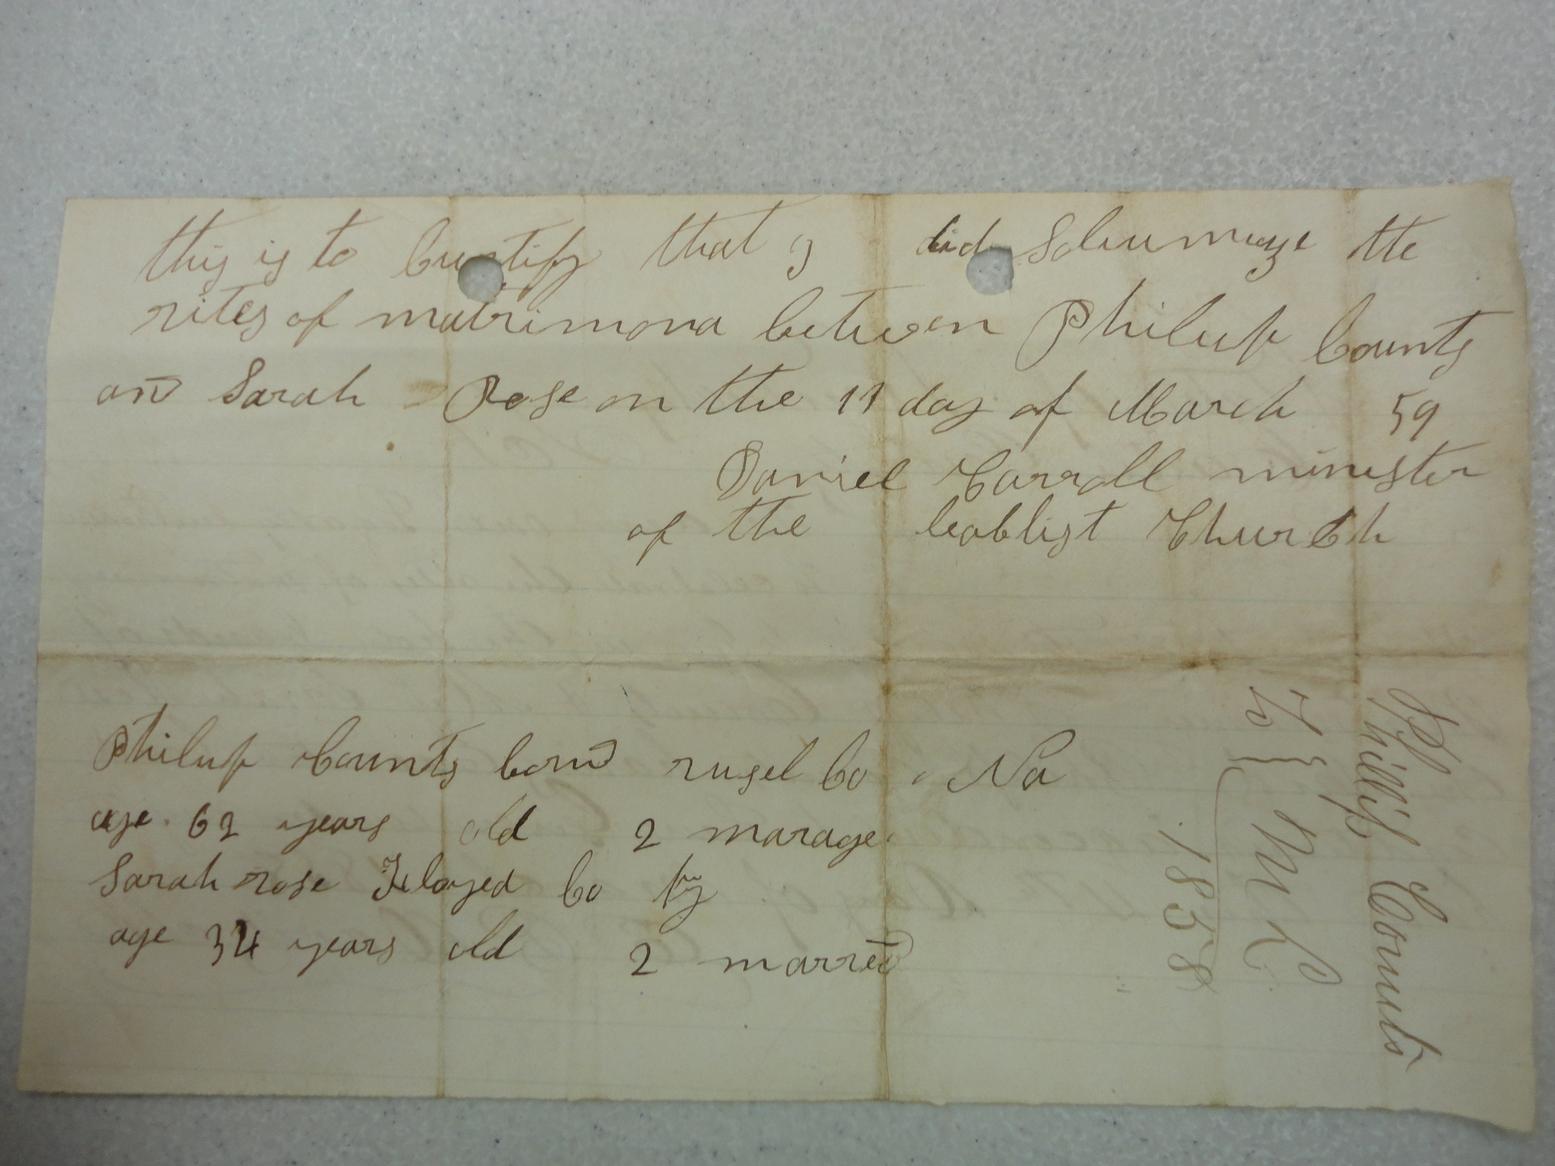 this is to Cirtify that I did Solumnize the
rites of matrimona between Philup Counts
and Sarah Rose on the 11 day of March 59
Daniel Carroll minister
of the babtist Church
Philup Counts born rusel Co Va
age 62 years old 2 marage
Sarah rose Floyed Co Ky
age 34 years old 2 married
Phillip Counts
To } M L
1858